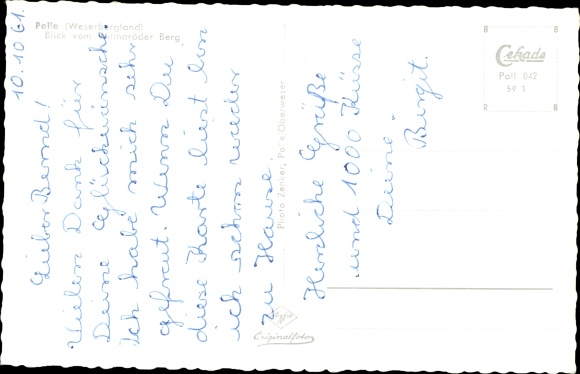 Polle (Weserbergland)
Blick vom Wilmaröder Berg
10.10.61.
Lieber Bernd!
Vielen Dank für
Deine Glückwünsche.
Ich habe mich sehr
gefreut. Wenn Du
diese Karte liest bin
ich schon wieder
zu Hause.
Herzliche Grüße
und 1000 Küsse
Deine
Birgit.
Photo Zenker, Polle/Oberweser
Cekade
Poll 042
59 1
Agfa
Originalfoto